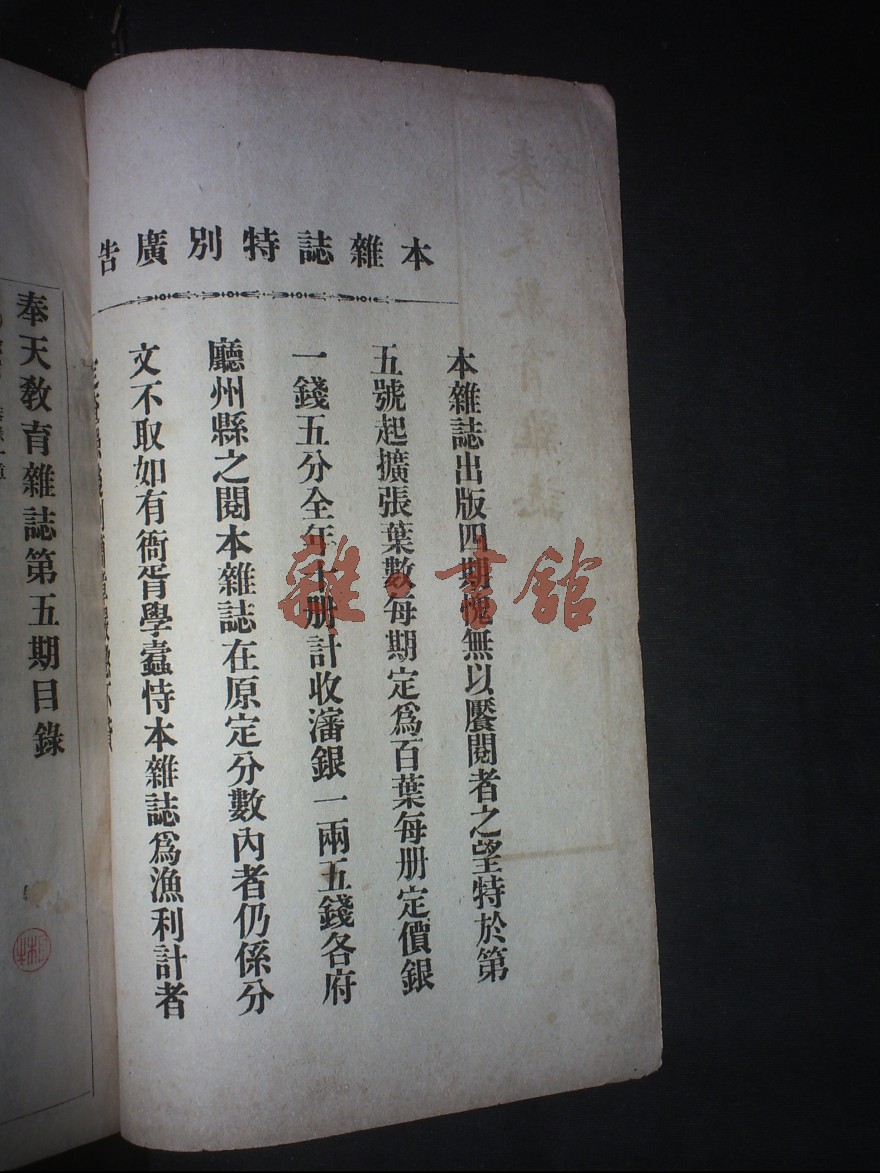 本雜誌特別廣告
本雜誌出版四期愧無以饜閱者之望特於第
五號起擴張葉數每期定爲百葉每册定價銀
一錢五分全年十册計收瀋銀一兩五錢各府
廳州縣之閱本雜誌在原定分數內者仍係分
文不取如有衙胥學蠹恃本雜誌爲漁利計者
奉天教育雜誌第五期目錄
奉天教育雜誌
雜·書館